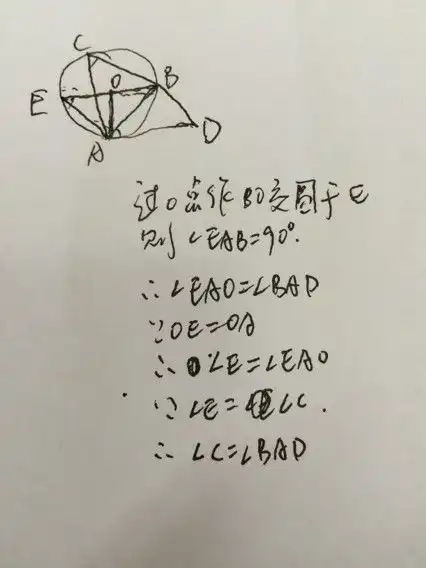 C
O
B
E
D
A
过O点作BO交圆于E
则∠EAB=90°.
∴∠EAO=∠BAD
∵OE=OA
∴∠E=∠EAO
∵∠E=∠C.
∴∠C=∠BAD